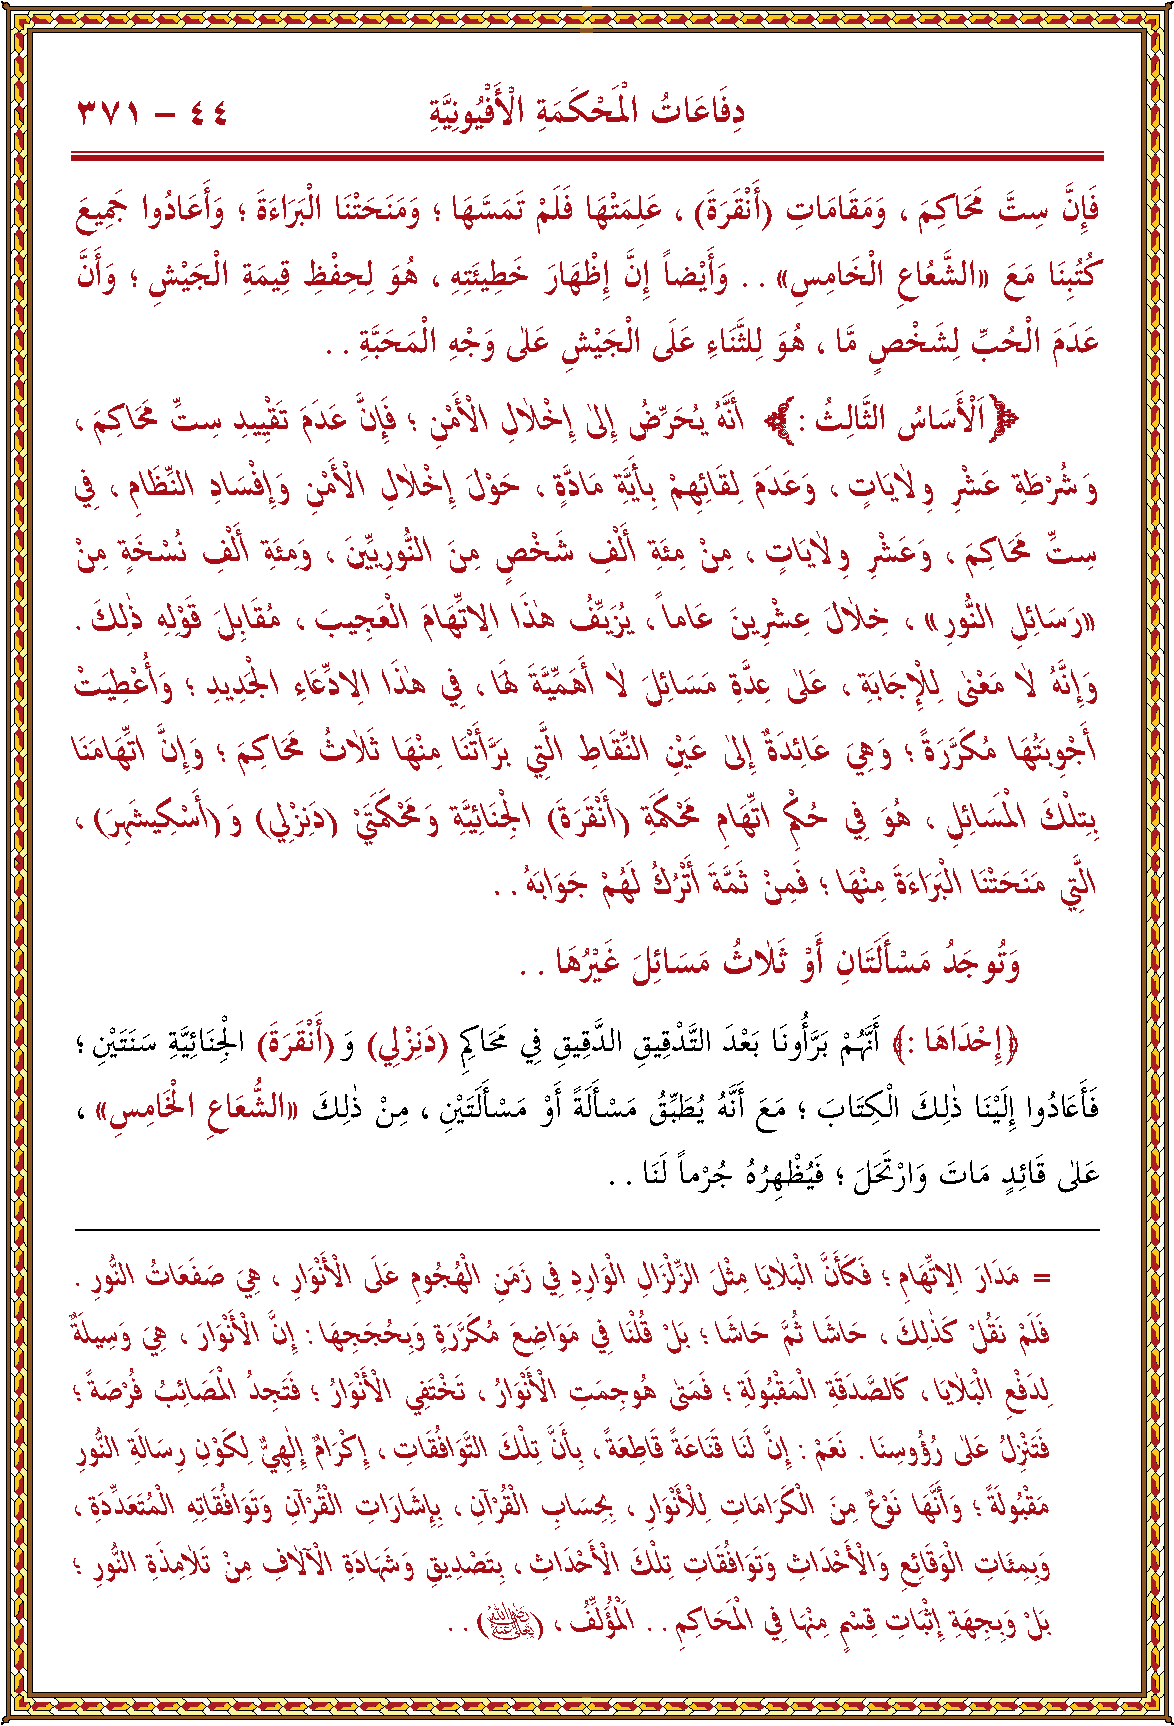 دِفَاعَاتُ الْمَحْكَمَةِ الْأَفْيُونِيَّةِ ٤٤ - ٣٧١
فَإِنَّ سِتَّ مَحَاكِمَ ، وَمَقَامَاتِ (أَنْقَرَةَ) ، عَلِمَتْهَا فَلَمْ تَمَسَّهَا ؛ وَمَنَحَتْنَا الْبَرَاءَةَ ؛ وَأَعَادُوا جَمِيعَ
كُتُبِنَا مَعَ «الشُّعَاعِ الْخَامِسِ» . . وَأَيْضاً إِنَّ إِظْهَارَ خَطِيئَتِهِ ، هُوَ لِحِفْظِ قِيمَةِ الْجَيْشِ ؛ وَأَنَّ
عَدَمَ الْحُبِّ لِشَخْصٍ مَّا ، هُوَ لِلثَّنَاءِ عَلَى الْجَيْشِ عَلٰى وَجْهِ الْمَحَبَّةِ . .
﴿اَلْأَسَاسُ الثَّالِثُ :﴾ أَنَّهُ يُحَرِّضُ إِلٰى إِخْلاٰلِ الْأَمْنِ ؛ فَإِنَّ عَدَمَ تَقْيِيدِ سِتِّ مَحَاكِمَ ،
وَشُرْطَةِ عَشْرِ وِلاٰيَاتٍ ، وَعَدَمَ لِقَائِهِمْ بِأَيَّةِ مَادَّةٍ ، حَوْلَ إِخْلاٰلِ الْأَمْنِ وَإِفْسَادِ النِّظَامِ ، فِي
سِتِّ مَحَاكِمَ ، وَعَشْرِ وِلاٰيَاتٍ ، مِنْ مِئَةِ أَلْفِ شَخْصٍ مِنَ النُّورِيِّينَ ، وَمِئَةِ أَلْفِ نُسْخَةٍ مِنْ
«رَسَائِلِ النُّورِ» ، خِلاٰلَ عِشْرِينَ عَاماً ، يُزَيِّفُ هٰذَا الاِتِّهَامَ الْعَجِيبَ ، مُقَابِلَ قَوْلِهِ ذٰلِكَ .
وَإِنَّهُ لاٰ مَعْنٰى لِلْإِجَابَةِ ، عَلٰى عِدَّةِ مَسَائِلَ لاٰ أَهَمِّيَّةَ لَهَا ، فِي هٰذَا الاِدِّعَاءِ الْجَدِيدِ ؛ وَأُعْطِيَتْ
أَجْوِبَتُهَا مُكَرَّرَةً ؛ وَهِيَ عَائِدَةٌ إِلٰى عَيْنِ النِّقَاطِ الَّتِي بَرَّأَتْنَا مِنْهَا ثَلاٰثُ مَحَاكِمَ ؛ وَإِنَّ اتِّهَامَنَا
بِتِلْكَ الْمَسَائِلِ ، هُوَ فِي حُكْمِ اتِّهَامِ مَحْكَمَةِ (أَنْقَرَةَ) الْجِنَائِيَّةِ وَمَحْكَمَتَيْ (دَنِزْلِي) وَ (أَسْكِيشَهِرَ) ،
الَّتِي مَنَحَتْنَا الْبَرَاءَةَ مِنْهَا ؛ فَمِنْ ثَمَّةَ أَتْرُكُ لَهُمْ جَوَابَهُ . .
وَتُوجَدُ مَسْأَلَتَانِ أَوْ ثَلاٰثُ مَسَائِلَ غَيْرُهَا . .
﴿إِحْدَاهَا :﴾ أَنَّهُمْ بَرَّأُونَا بَعْدَ التَّدْقِيقِ الدَّقِيقِ فِي مَحَاكِمِ (دَنِزْلِي) وَ (أَنْقَرَةَ) الْجِنَائِيَّةِ سَنَتَيْنِ ؛
فَأَعَادُوا إِلَيْنَا ذٰلِكَ الْكِتَابَ ؛ مَعَ أَنَّهُ يُطَبِّقُ مَسْأَلَةً أَوْ مَسْأَلَتَيْنِ ، مِنْ ذٰلِكَ «الشُّعَاعِ الْخَامِسِ» ،
عَلٰى قَائِدٍ مَاتَ وَارْتَحَلَ ؛ فَيُظْهِرُهُ جُرْماً لَنَا . .
= مَدَارَ الاِتِّهَامِ ؛ فَكَأَنَّ الْبَلاٰيَا مِثْلَ الزِّلْزَالِ الْوَارِدِ فِي زَمَنِ الْهُجُومِ عَلَى الْأَنْوَارِ ، هِيَ صَفَعَاتُ النُّورِ .
فَلَمْ نَقُلْ كَذٰلِكَ ، حَاشَا ثُمَّ حَاشَا ؛ بَلْ قُلْنَا فِي مَوَاضِعَ مُكَرَّرَةٍ وَبِحُجَجِهَا : إِنَّ الْأَنْوَارَ ، هِيَ وَسِيلَةٌ
لِدَفْعِ الْبَلاٰيَا ، كَالصَّدَقَةِ الْمَقْبُولَةِ ؛ فَمَتٰى هُوجِمَتِ الْأَنْوَارُ ، تَخْتَفِي الْأَنْوَارُ ؛ فَتَجِدُ الْمَصَائِبُ فُرْصَةً ؛
فَتَنْزِلُ عَلٰى رُؤُوسِنَا . نَعَمْ : إِنَّ لَنَا قَنَاعَةً قَاطِعَةً ، بِأَنَّ تِلْكَ التَّوَافُقَاتِ ، إِكْرَامٌ إِلٰهِيٌّ لِكَوْنِ رِسَالَةِ النُّورِ
مَقْبُولَةً ؛ وَأَنَّهَا نَوْعٌ مِنَ الْكَرَامَاتِ لِلْأَنْوَارِ ، بِحِسَابِ الْقُرْآنِ ، بِإِشَارَاتِ الْقُرْآنِ وَتَوَافُقَاتِهِ الْمُتَعَدِّدَةِ ،
وَبِمِئَاتِ الْوَقَائِعِ وَالْأَحْدَاثِ وَتَوَافُقَاتِ تِلْكَ الْأَحْدَاثِ ، بِتَصْدِيقِ وَشَهَادَةِ الْآلاٰفِ مِنْ تَلاٰمِذَةِ النُّورِ ؛
بَلْ وَبِجِهَةِ إِثْبَاتِ قِسْمٍ مِنْهَا فِي الْمَحَاكِمِ . . اَلْمُؤَلِّفُ ، (رضي الله عنه) . .